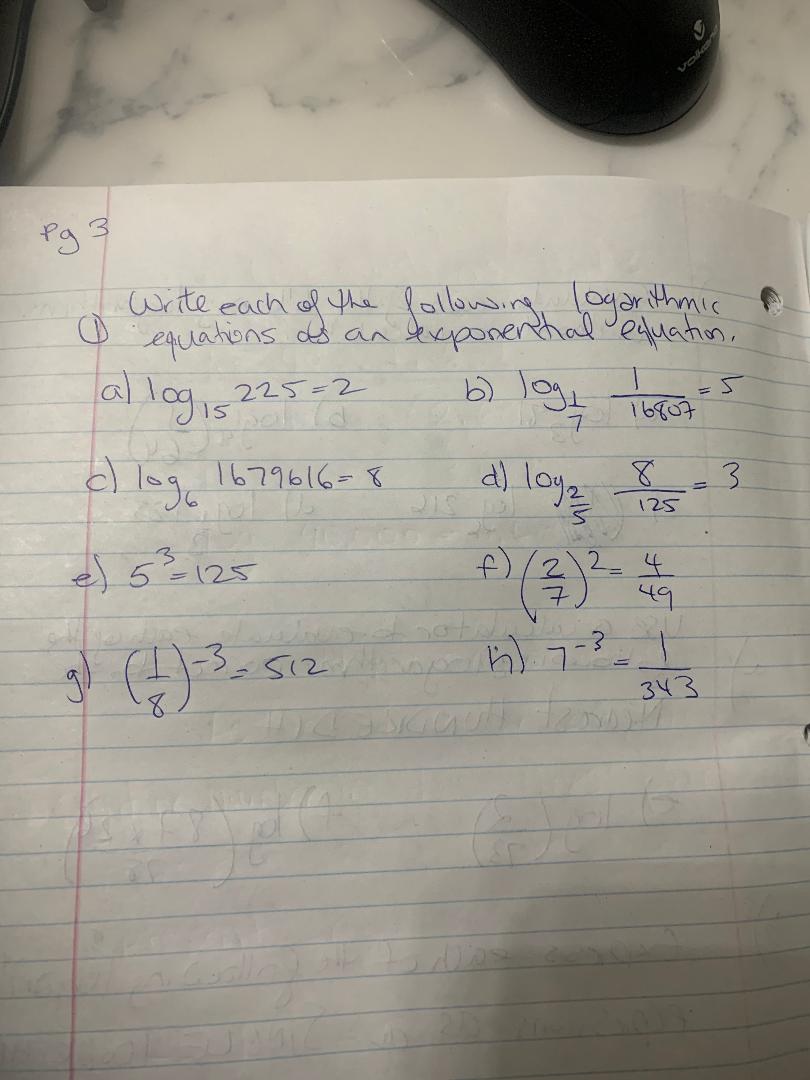 Pg 3
① Write each of the following logarithmic
equations as an exponential equation.
a) log₁₅ 225 = 2 b) log_(1/7) 1/16807 = 5
c) log₆ 1679616 = 8 d) log_(2/5) 8/125 = 3
e) 5³ = 125 f) (2/7)² = 4/49
g) (1/8)⁻³ = 512 h) 7⁻³ = 1/343